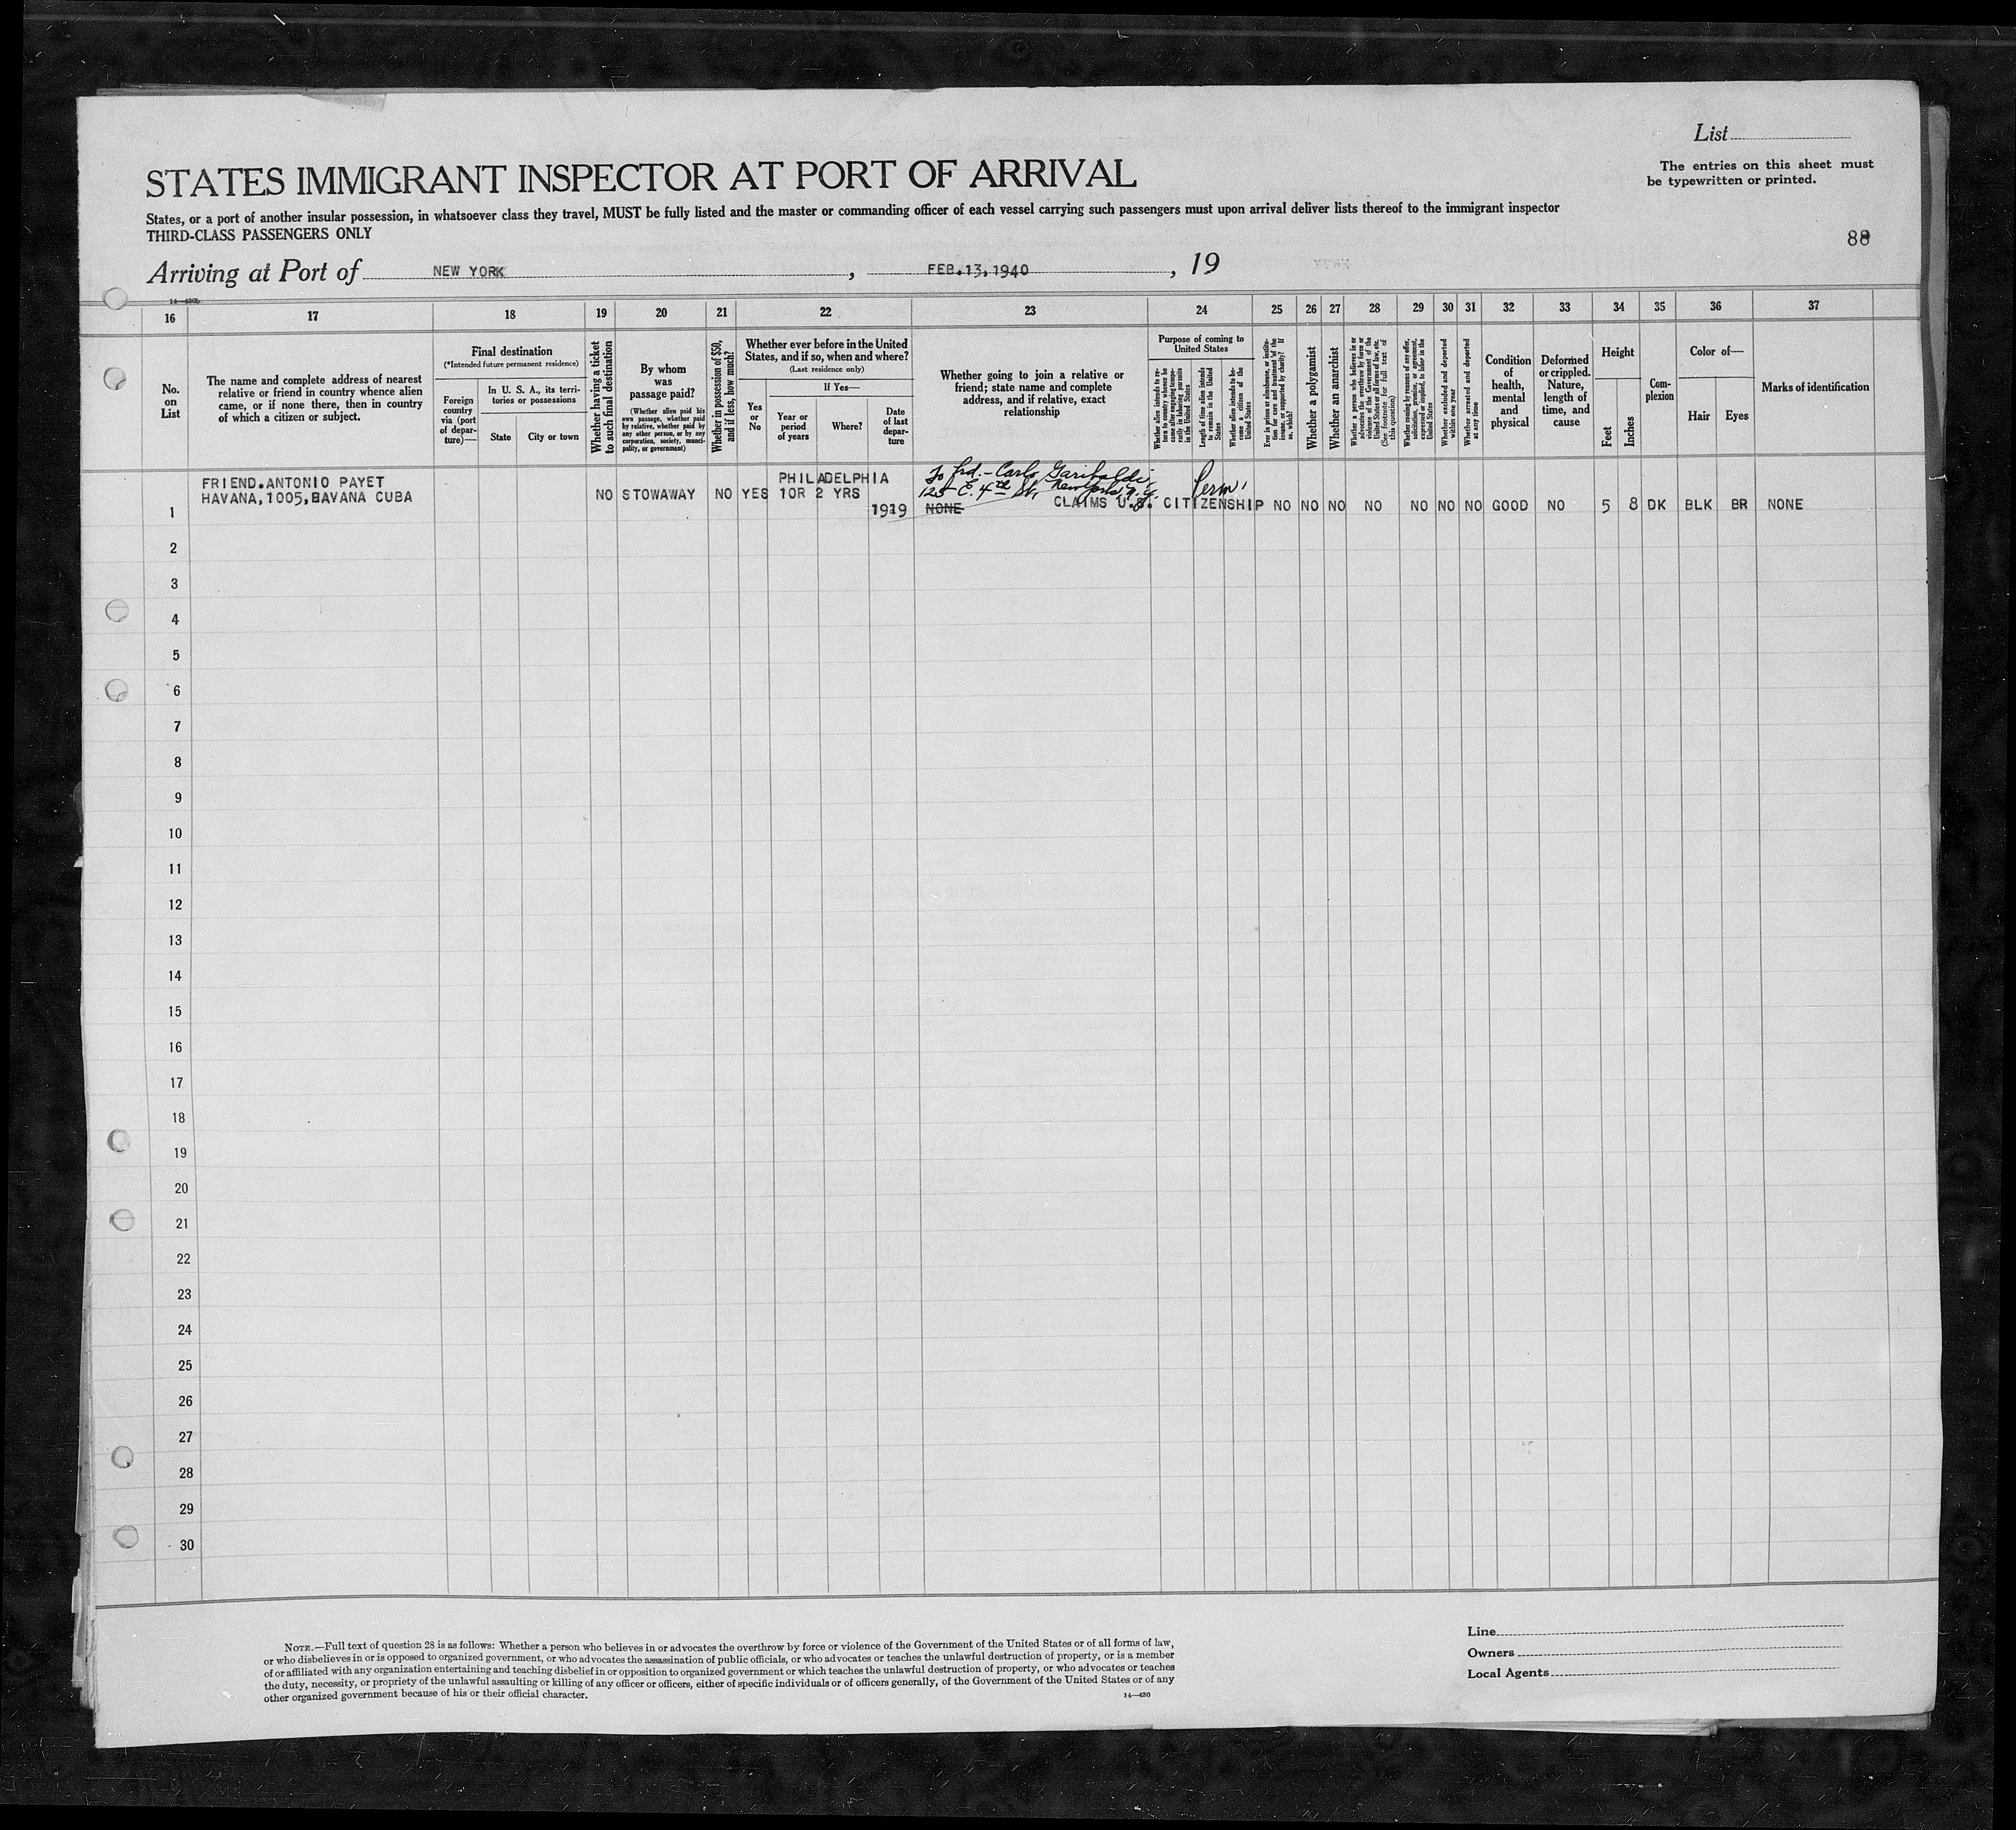 List
The entries on this sheet must
be typewritten or printed.
STATES IMMIGRANT INSPECTOR AT PORT OF ARRIVAL
States, or a port of another insular possession, in whatsoever class they travel, MUST be fully listed and the master or commanding officer of each vessel carrying such passengers must upon arrival deliver lists thereof to the immigrant inspector
THIRD-CLASS PASSENGERS ONLY
88
Arriving at Port of NEW YORK, FEB.13,1940, 19
16 17 18 19 20 21 22 23 24 25 26 27 28 29 30 31 32 33 34 35 36 37
No.
on
List
The name and complete address of nearest
relative or friend in country whence alien
came, or if none there, then in country
of which a citizen or subject.
Final destination
(*Intended future permanent residence)
Foreign
country
via (port
of depar-
ture)—
In U. S. A., its terri-
tories or possessions
State
City or town
Whether having a ticket
to such final destination
By whom
was
passage paid?
(Whether alien paid his
own passage, whether paid
by relative, whether paid by
any other person, or by any
corporation, society, munici-
pality, or government)
Whether in possession of $50,
and if less, how much?
Whether ever before in the United
States, and if so, when and where?
(Last residence only)
Yes
or
No
If Yes—
Year or
period
of years
Where?
Date
of last
depar-
ture
Whether going to join a relative or
friend; state name and complete
address, and if relative, exact
relationship
Purpose of coming to
United States
Whether alien intends to re-
turn to country whence he
came after engaging tempo-
rarily in laboring pursuits
in the United States
Length of time alien intends
to remain in the United
States
Whether alien intends to be-
come a citizen of the
United States
Ever in prison or almshouse, or institu-
tion for care and treatment of the
insane, or supported by charity? If
so, which?
Whether a polygamist
Whether an anarchist
Whether a person who believes in or
advocates the overthrow by force or
violence of the Government of the
United States or all forms of law, etc.
(See footnote for full text of
this question)
Whether coming by reasons of any offer,
solicitation, promise, or agreement,
expressed or implied, to labor in the
United States
Whether excluded and deported
within one year
Whether arrested and deported
at any time
Condition
of
health,
mental
and
physical
Deformed
or crippled.
Nature,
length of
time, and
cause
Height
Feet
Inches
Com-
plexion
Color of—
Hair
Eyes
Marks of identification
FRIEND.ANTONIO PAYET
HAVANA,1005,HAVANA CUBA
1 NO STOWAWAY NO YES 1OR 2 YRS PHILADELPHIA 1919
To frd.- Carlo Garibaldi,
125 E. 4th St, New York, N.Y.
NONE CLAIMS U.S. CITIZENSHIP
Perm'
NO NO NO NO NO NO NO GOOD NO 5 8 DK BLK BR NONE
2
3
4
5
6
7
8
9
10
11
12
13
14
15
16
17
18
19
20
21
22
23
24
25
26
27
28
29
30
NOTE.—Full text of question 28 is as follows: Whether a person who believes in or advocates the overthrow by force or violence of the Government of the United States or of all forms of law,
or who disbelieves in or is opposed to organized government, or who advocates the assassination of public officials, or who advocates or teaches the unlawful destruction of property, or is a member
of or affiliated with any organization entertaining and teaching disbelief in or opposition to organized government or which teaches the unlawful destruction of property, or who advocates or teaches
the duty, necessity, or propriety of the unlawful assaulting or killing of any officer or officers, either of specific individuals or of officers generally, of the Government of the United States or of any
other organized government because of his or their official character.
14—430
Line
Owners
Local Agents